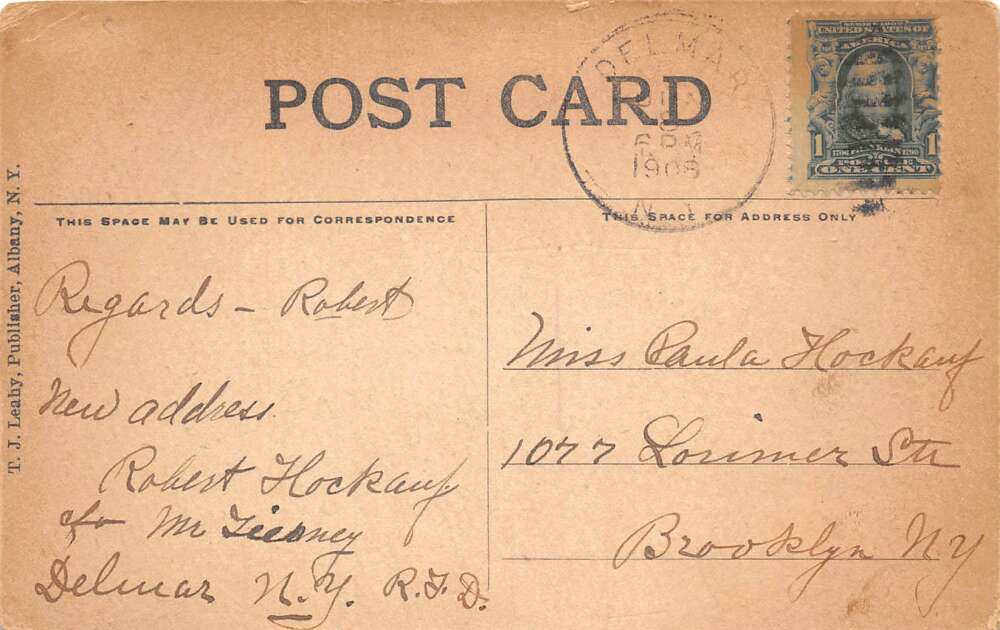 POST CARD
DELMAR
6 PM
1908
N.Y.
SERIES 1902
UNITED STATES OF
AMERICA
1 1
1706 FRANKLIN 1790
POSTAGE
ONE CENT
THIS SPACE MAY BE USED FOR CORRESPONDENCE
THIS SPACE FOR ADDRESS ONLY
T. J. Leahy, Publisher, Albany, N. Y.
Regards – Robert
New address
Robert Hockauf
c/o Mr Tierney
Delmar N.Y. R.F.D.
Miss Paula Hockauf
1077 Lorimer Str
Brooklyn NY